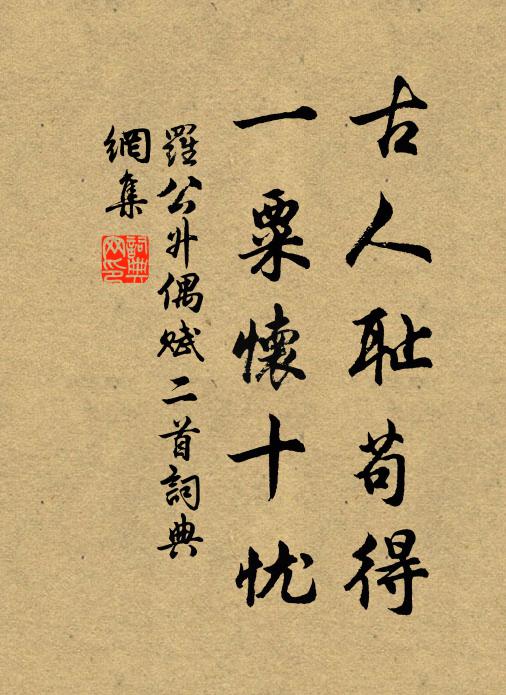 古人耻苟得
一粟懷十忧
羅公升偶賦二首詞典
網集
詞典
网印